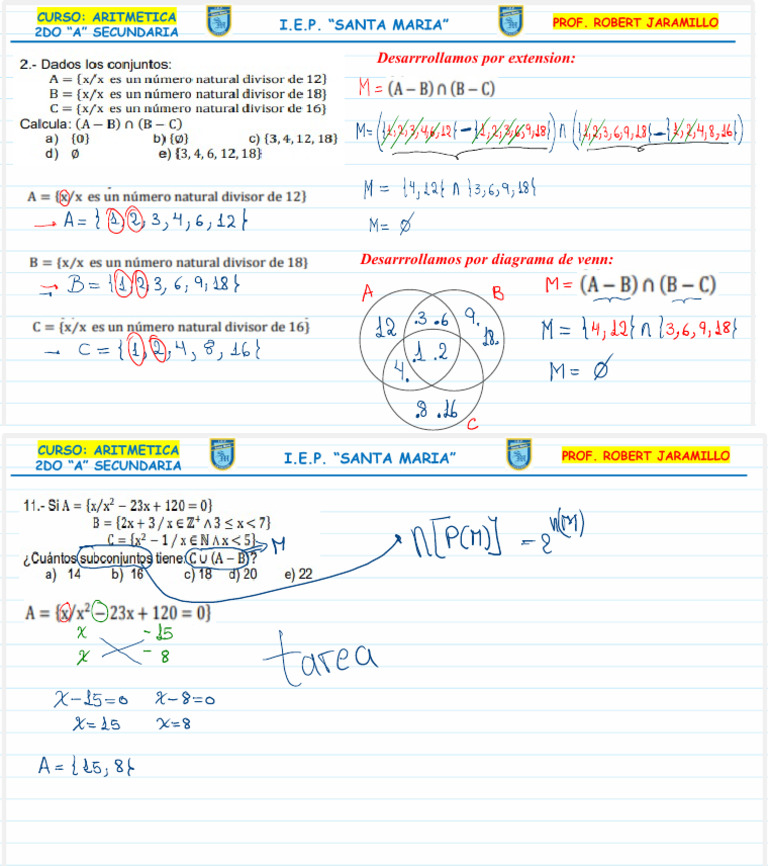 CURSO: ARITMETICA
2DO "A" SECUNDARIA
I.E.P. "SANTA MARIA"
PROF. ROBERT JARAMILLO
2.- Dados los conjuntos:
A = {x/x es un número natural divisor de 12}
B = {x/x es un número natural divisor de 18}
C = {x/x es un número natural divisor de 16}
Calcula: (A – B) ∩ (B – C)
a) {0} b) {∅} c) {3, 4, 12, 18}
d) ∅ e) {3, 4, 6, 12, 18}
A = {x/x es un número natural divisor de 12}
→ A = { 1, 2, 3, 4, 6, 12 }
B = {x/x es un número natural divisor de 18}
→ B = { 1, 2, 3, 6, 9, 18 }
C = {x/x es un número natural divisor de 16}
→ C = { 1, 2, 4, 8, 16 }
Desarrrollamos por extension:
M = (A – B) ∩ (B – C)
M = ({1,2,3,4,6,12} – {1,2,3,6,9,18}) ∩ ({1,2,3,6,9,18} – {1,2,4,8,16})
M = {4,12} ∩ {3,6,9,18}
M = ∅
Desarrrollamos por diagrama de venn:
A B
12 .3 .6 9. 18.
.1 .2
4.
.8 .16
C
M = (A – B) ∩ (B – C)
M = {4,12} ∩ {3,6,9,18}
M = ∅
CURSO: ARITMETICA
2DO "A" SECUNDARIA
I.E.P. "SANTA MARIA"
PROF. ROBERT JARAMILLO
11.- Si A = {x/x² – 23x + 120 = 0}
B = {2x + 3 / x ∈ Z⁺ ∧ 3 ≤ x < 7}
C = {x² – 1 / x ∈ N ∧ x < 5}
¿Cuántos subconjuntos tiene C ∪ (A – B)? M
a) 14 b) 16 c) 18 d) 20 e) 22
n[P(M)] = 2^n(M)
A = {x/x² – 23x + 120 = 0}
x -15
x -8
tarea
x-15=0 x-8=0
x=15 x=8
A = { 15; 8}